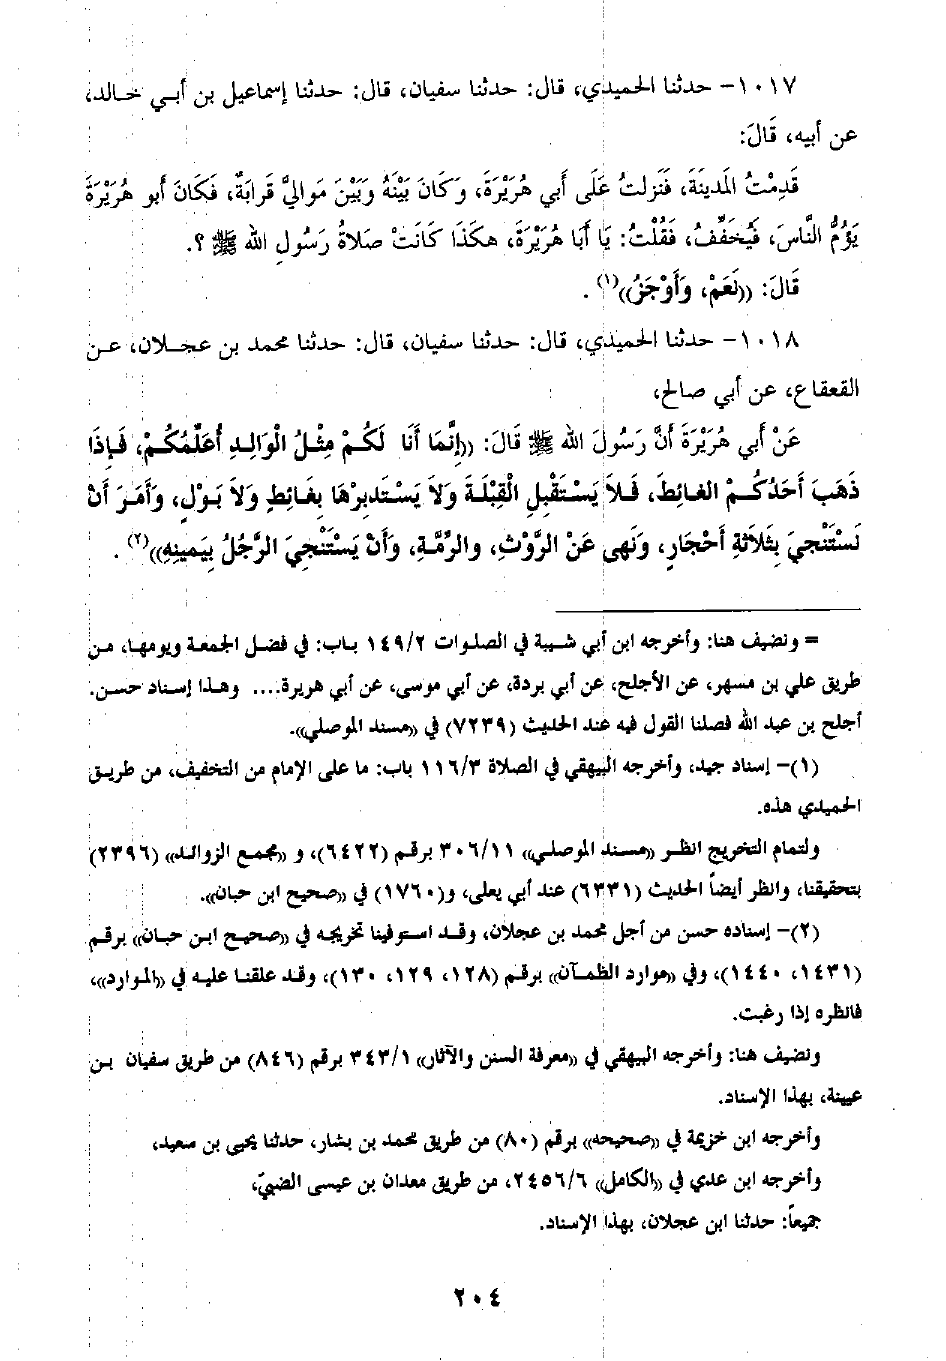 ١٠١٧- حدثنا الحميدي، قال: حدثنا سفيان، قال: حدثنا إسماعيل بن أبي خالد،
عن أبيه، قَالَ:
قَدِمْتُ المَدينَة، فَنَزلتُ عَلَى أَبي هُرَيْرَةَ، وَكَانَ بَيْنَهُ وَبَيْنَ مَوالِيَّ قَرابَةٌ، فَكَانَ أبو هُرَيْرَةَ
يَؤُمُّ النَّاسَ، فَيُخَفِّفُ، فَقُلْتُ: يَا أَبَا هُرَيْرَةَ، هكَذَا كَانَتْ صَلاةُ رَسُولِ الله ﷺ ؟.
قَالَ: ((نَعَمْ، وَأَوْجَزُ))(١) .
١٠١٨- حدثنا الحميدي، قال: حدثنا سفيان، قال: حدثنا محمد بن عجلان، عن
القعقاع، عن أبي صالح،
عَنْ أبي هُرَيْرَةَ أنَّ رَسُولَ الله ﷺ قَالَ: ((إِنَّمَا أَنَا لَكُمْ مِثْلُ الْوَالِدِ أُعَلِّمُكُمْ، فَإِذَا
ذَهَبَ أَحَدُكُمْ الغَائِطَ، فَلاَ يَسْتَقْبِلِ الْقِبْلَةَ وَلاَ يَسْتَدبِرْهَا بِغَائِطٍ وَلاَ بَوْلٍ، وَأَمَرَ أَنْ
نَسْتَنْجيَ بِثَلاَثَةِ أَحْجَارٍ، وَنَهى عَنْ الرَّوْثِ، والرُّمَّةِ، وَأَنْ يَسْتَنْجِيَ الرَّجُلُ بِيَمينِهِ))(٢) .
= ونضيف هنا: وأخرجه ابن أبي شيبة في الصلوات ١٤٩/٢ باب: في فضل الجمعة ويومها، من
طريق علي بن مسهر، عن الأجلح، عن أبي بردة، عن أبي موسى، عن أبي هريرة.... وهذا إسناد حسن.
أجلح بن عبد الله فصلنا القول فيه عند الحديث (٧٢٣٩) في ((مسند الموصلي)).
(١)- إسناد جيد، وأخرجه البيهقي في الصلاة ١١٦/٣ باب: ما على الإمام من التخفيف، من طريق
الحميدي هذه.
ولتمام التخريج انظر ((مسند الموصلي)) ٣٠٦/١١ برقم (٦٤٢٢)، و ((مجمع الزوائد)) (٢٣٩٦)
بتحقيقنا، وانظر أيضاً الحديث (٦٣٣١) عند أبي يعلى، و(١٧٦٠) في ((صحيح ابن حبان)).
(٢)- إسناده حسن من أجل محمد بن عجلان، وقد استوفينا تخريجه في ((صحيح ابن حبان)) برقم
(١٤٣١، ١٤٤٠)، وفي ((موارد الظمآن)) برقم (١٢٨، ١٢٩، ١٣٠)، وقد علقنا عليه في ((الموارد))،
فانظره إذا رغبت.
ونضيف هنا: وأخرجه البيهقي في ((معرفة السنن والآثار)) ٣٤٣/١ برقم (٨٤٦) من طريق سفيان بن
عيينة، بهذا الإسناد.
وأخرجه ابن خزيمة في ((صحيحه)) برقم (٨٠) من طريق محمد بن بشار، حدثنا يحيى بن سعيد،
وأخرجه ابن عدي في ((الكامل)) ٢٤٥٦/٦، من طريق معدان بن عيسى الضبيّ،
جميعاً: حدثنا ابن عجلان، بهذا الإسناد.
٢٠٤